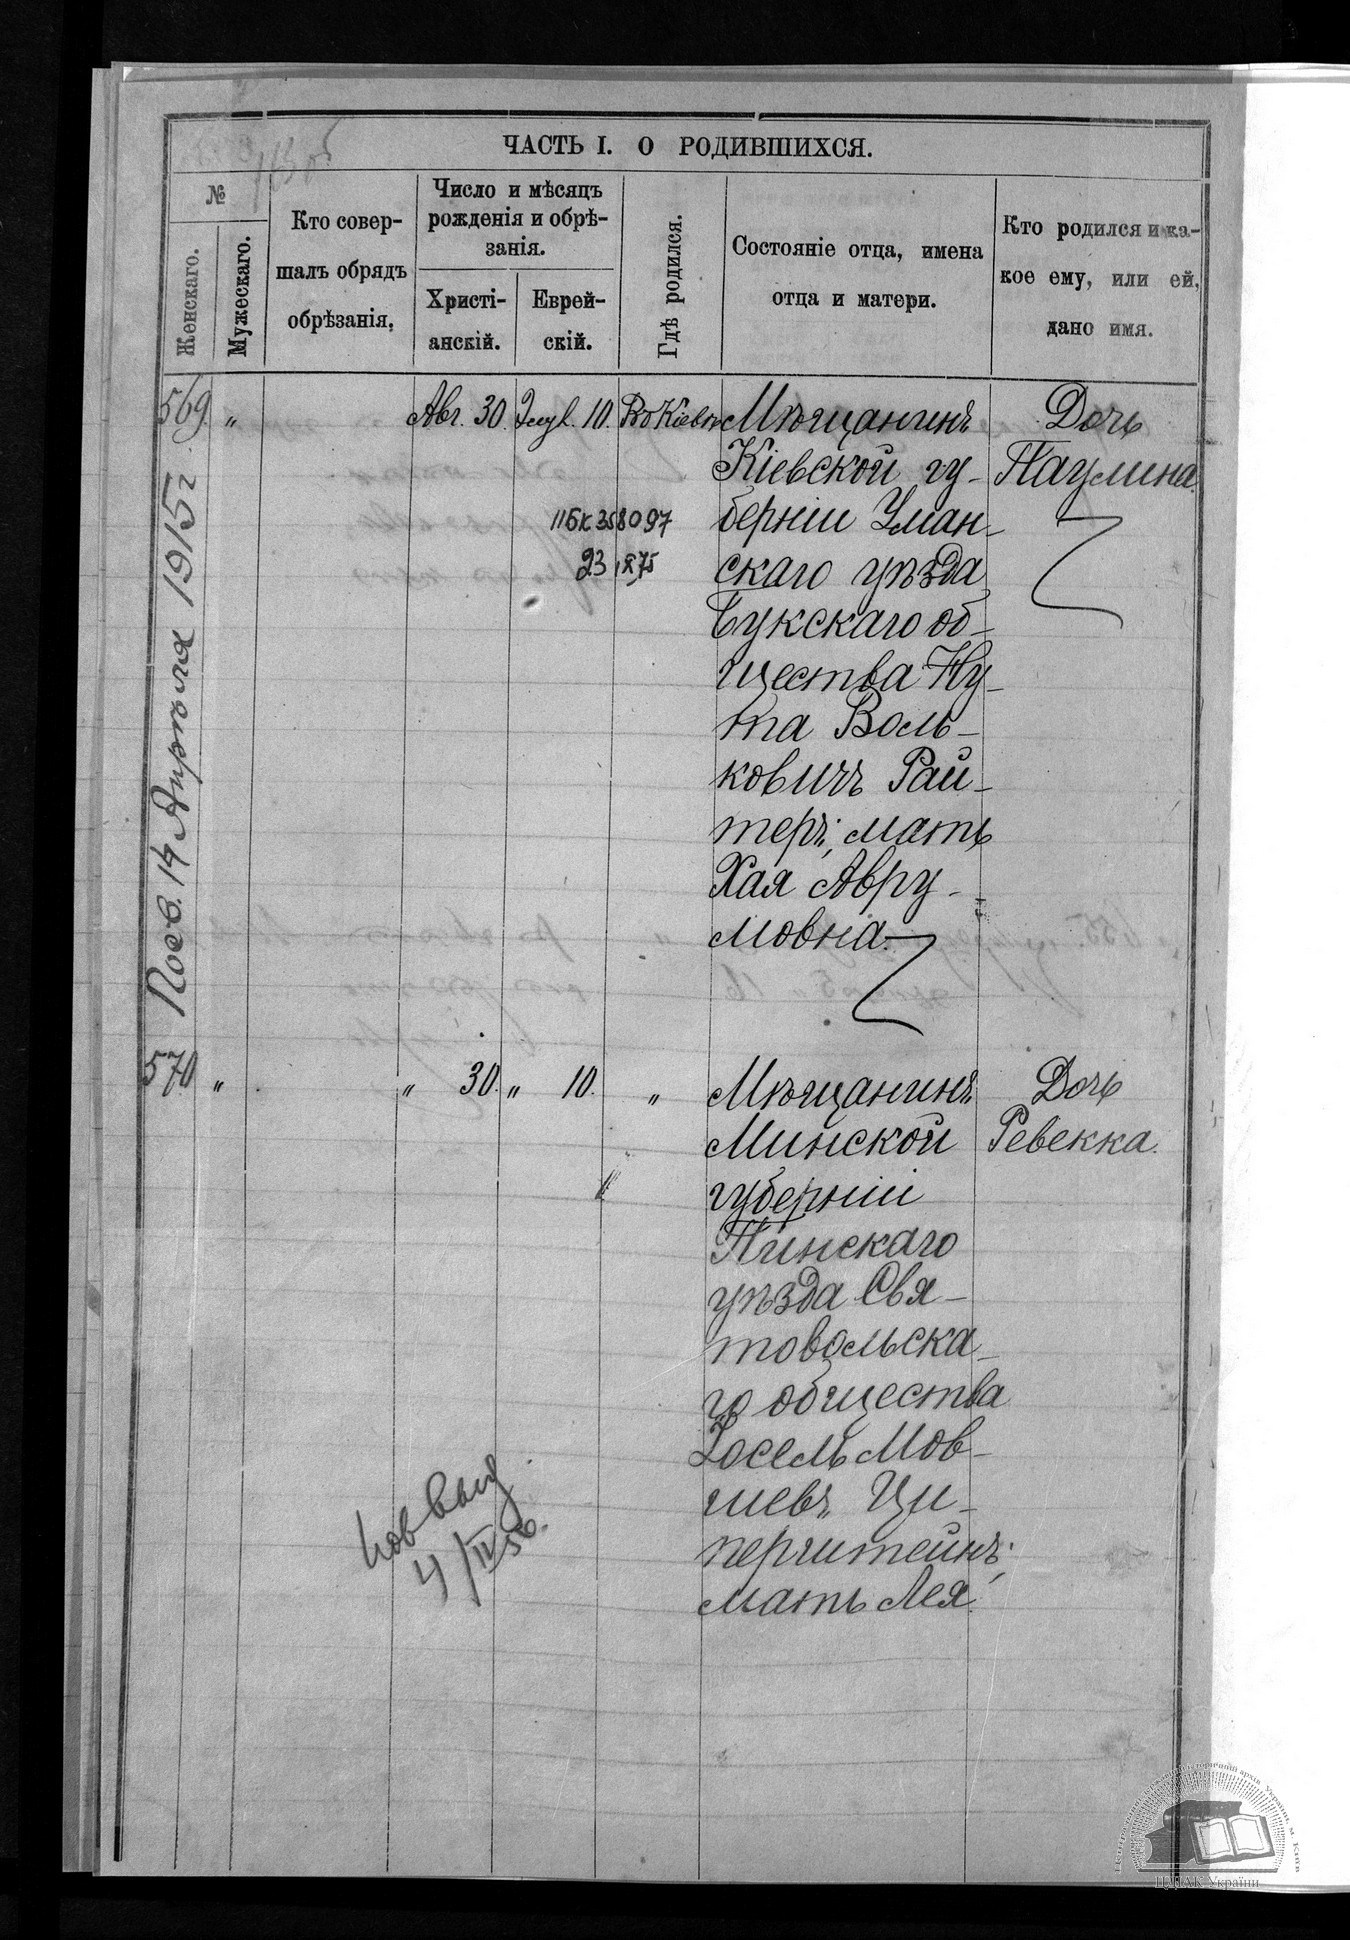 ЧАСТЬ I. О РОДИВШИХСЯ.
№
Женскаго.
Мужескаго.
Кто совер-
шалъ обрядъ
обрѣзанія.
Число и мѣсяцъ
рожденія и обрѣ-
занія.
Христі-
анскій.
Еврей-
скій.
Гдѣ родился.
Состояніе отца, имена
отца и матери.
Кто родился и ка-
кое ему, или ей,
дано имя.
569. " Авг. 30. Элул. 10. Въ Кіевѣ
Мѣщанинъ
Кіевской гу-
берніи Уман-
скаго уѣзда
Букскаго об-
щества Ну-
та Воль-
ковичъ Рай-
теръ; мать
Хая Авру-
мовна.
Дочь
Паулина.
11БК 358097
23.X 75
14 Апрѣля 1915 г
570 " " 30. " 10. "
Мѣщанинъ
Минской
губерніи
Пинскаго
уѣзда Свя-
товольска-
го общества
Іосель Мов-
шевъ Ци-
перштейнъ;
мать Лея.
Дочь
Ревекка.
4/II 56.
ЦДІАК України